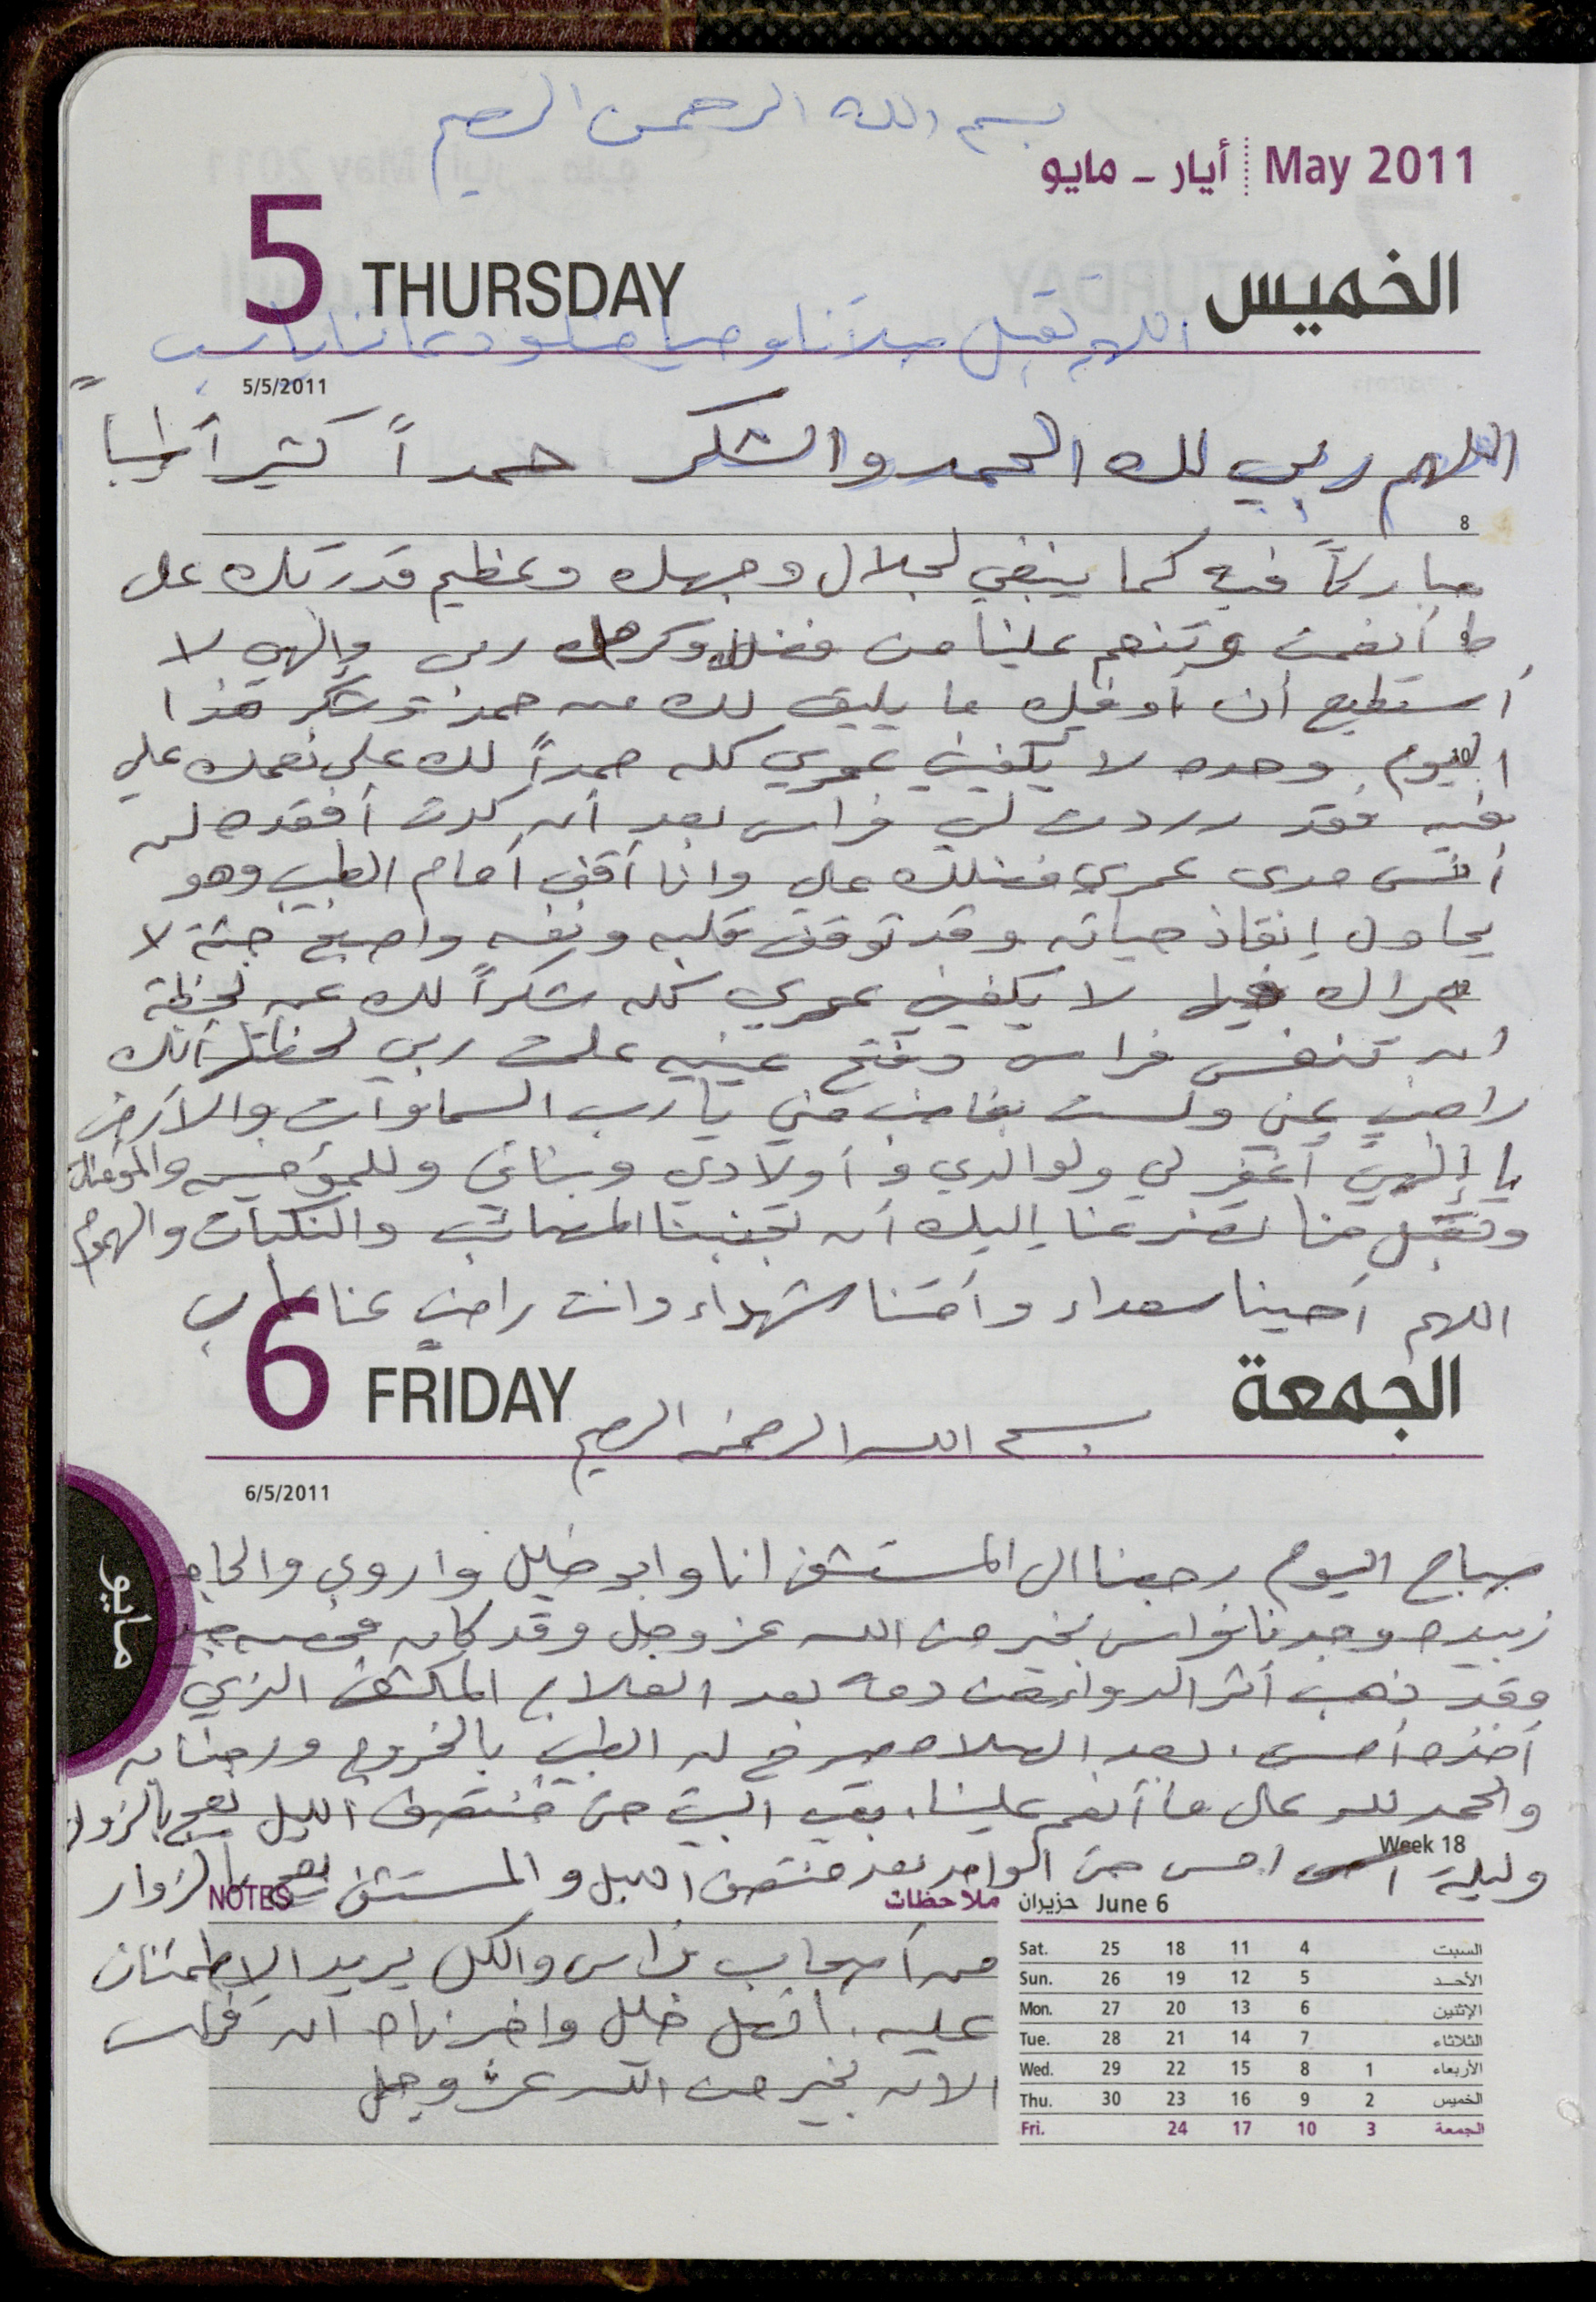 بسم الله الرحمن الرحيم
أيار - مايو May 2011
5 THURSDAY الخميس
اللهم تقبل صلاتنا وصيامنا ودعانا يا رب
5/5/2011
اللهم ربي لك الحمد والشكر حمداً كثيراً طيباً
8
مباركاً فيه كما ينبغي لجلال وجهك وعظيم قدرتك على
ما أنعمت وتنعم علينا من فضلك وكرمك ربي وإلهي لا
أستطيع أن أوفيك ما يليق لك من حمد وشكر هذا
اليوم وحده لا يكفيني عمري كله حمداً لك على نعمك علي
فيه فقد رددت لي فراس بعد أن كدت أفقده لن
أنسى مدى عمري فضلك علي وانا أقف أمام الطبيب وهو
يحاول إنقاذ حياته وقد توقف قلبه ونفسه واصبح جثة لا
حراك فيها لا يكفيني عمري كله شكراً لك عن لحظة
ان تنفس فراس وفتح عينيه علمت ربي لحظتها أنك
راضٍ عني ولست بغاضب مني يا رب السماوات والأرض
يا إلهي أغفر لي ولوالدي و أولادي وبناتي وللمؤمنين والمؤمنات
وتقبل منا تضرعنا إليك أن تجنبنا المصائب والنكبات والهموم
اللهم أحينا سعداء وأمتنا شهداء وانت راضٍ عنا يا رب
6 FRIDAY الجمعة
بسم الله الرحمن الرحيم
6/5/2011
مايو
صباح اليوم رحنا الى المستشفى انا وابو خليل واروى والحاجه
زبيده وجدنا فراس بخير من الله عز وجل وقد كان فحصه جيد
وقد ذهب أثر الدواء من دمه بعد العلاج المكثف الذي
أخذه أمس. بعد الصلاة صرح له الطبيب بالخروج ورجعنا به
والحمد لله على ما أنعم علينا. بقي البيت حتى منتصف الليل يعج بالزوار
Week 18
وليلة امس حتى الواحد بعد منتصف الليل والمستشفى يعج بالزوار
NOTES ملاحظات
من أصحاب فراس والكل يريد الإطمئنان
عليه. اتصل خليل واخبرناه ان فراس
الان بخير من الله عز وجل
حزيران June 6
Sat. 25 18 11 4 السبت
Sun. 26 19 12 5 الأحد
Mon. 27 20 13 6 الإثنين
Tue. 28 21 14 7 الثلاثاء
Wed. 29 22 15 8 1 الأربعاء
Thu. 30 23 16 9 2 الخميس
Fri. 24 17 10 3 الجمعة